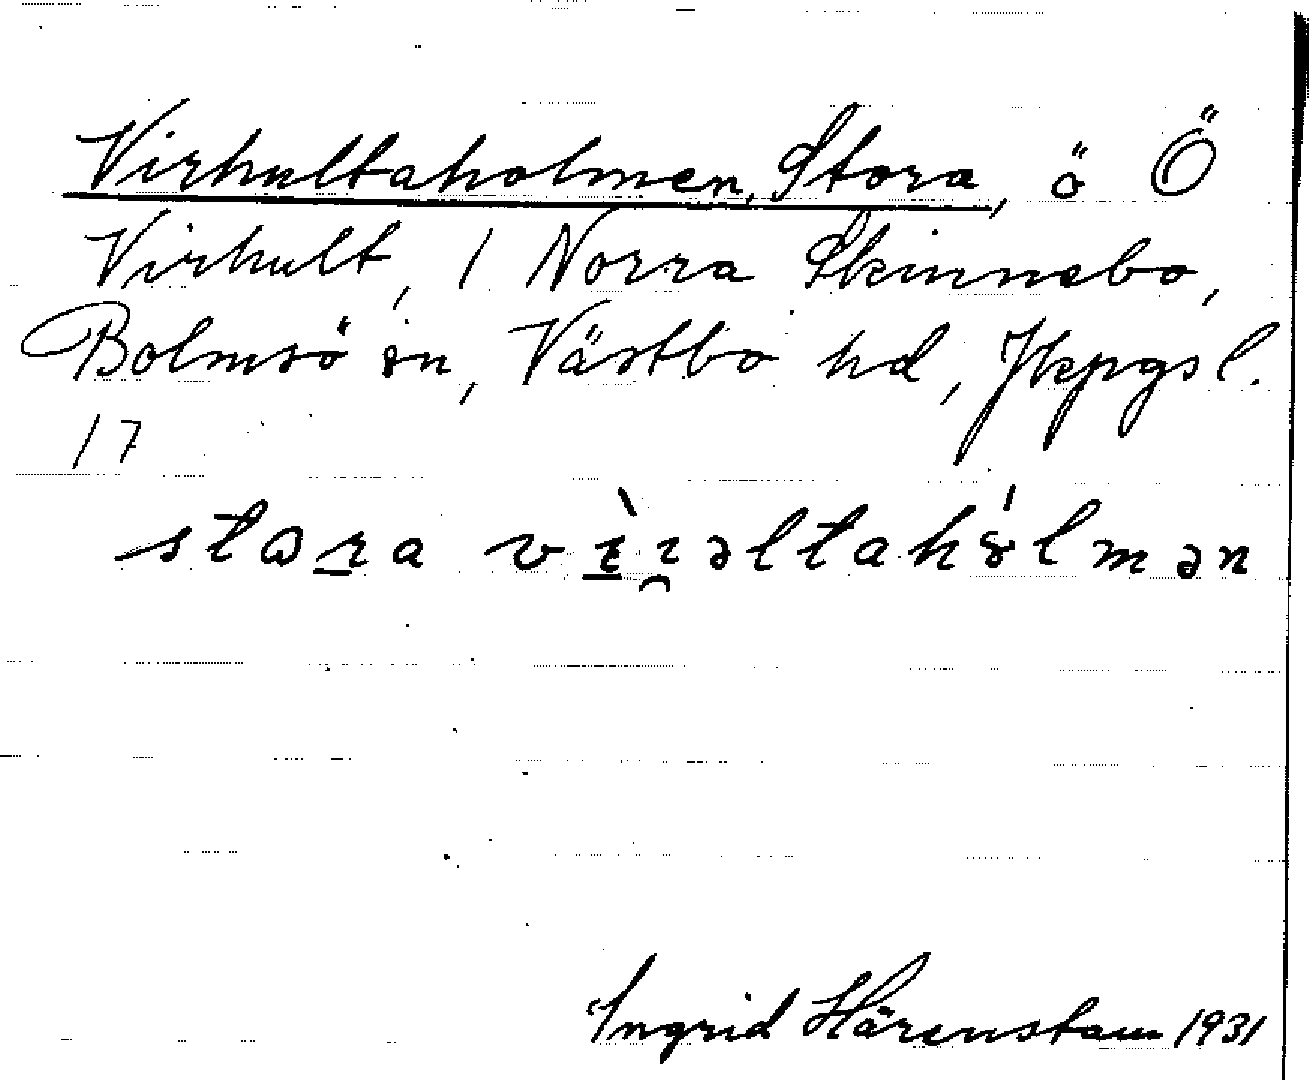 Virhultaholmen, Stora, ö Ö
Virhult, 1 Norra Skinnebo,
Bolmsö sn, Västbo hd, Jkpgs l.
17
Ingrid Härenstam 1931